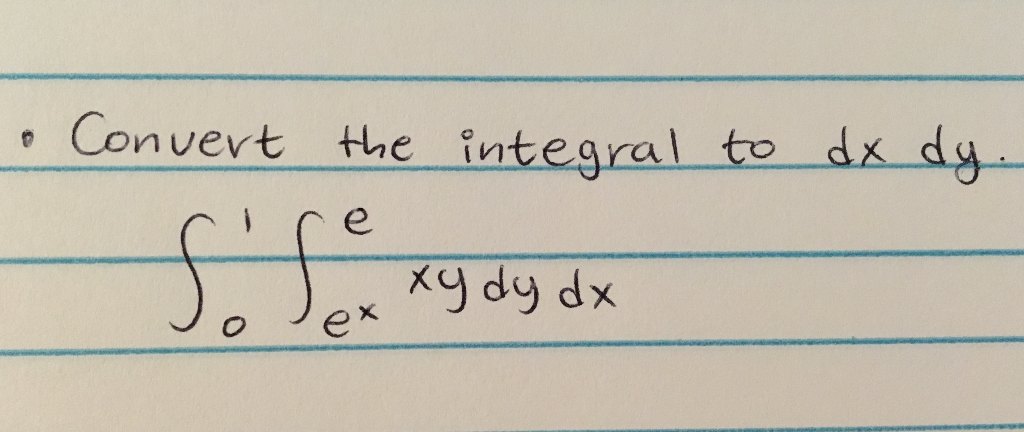 • Convert the integral to dx dy.
∫₀¹ ∫ₑˣᵉ xy dy dx